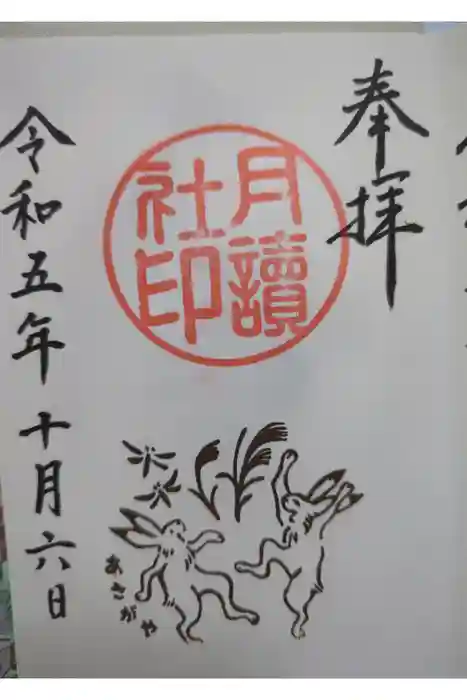 奉拝
月讀
社印
令和五年十月六日
あさがや